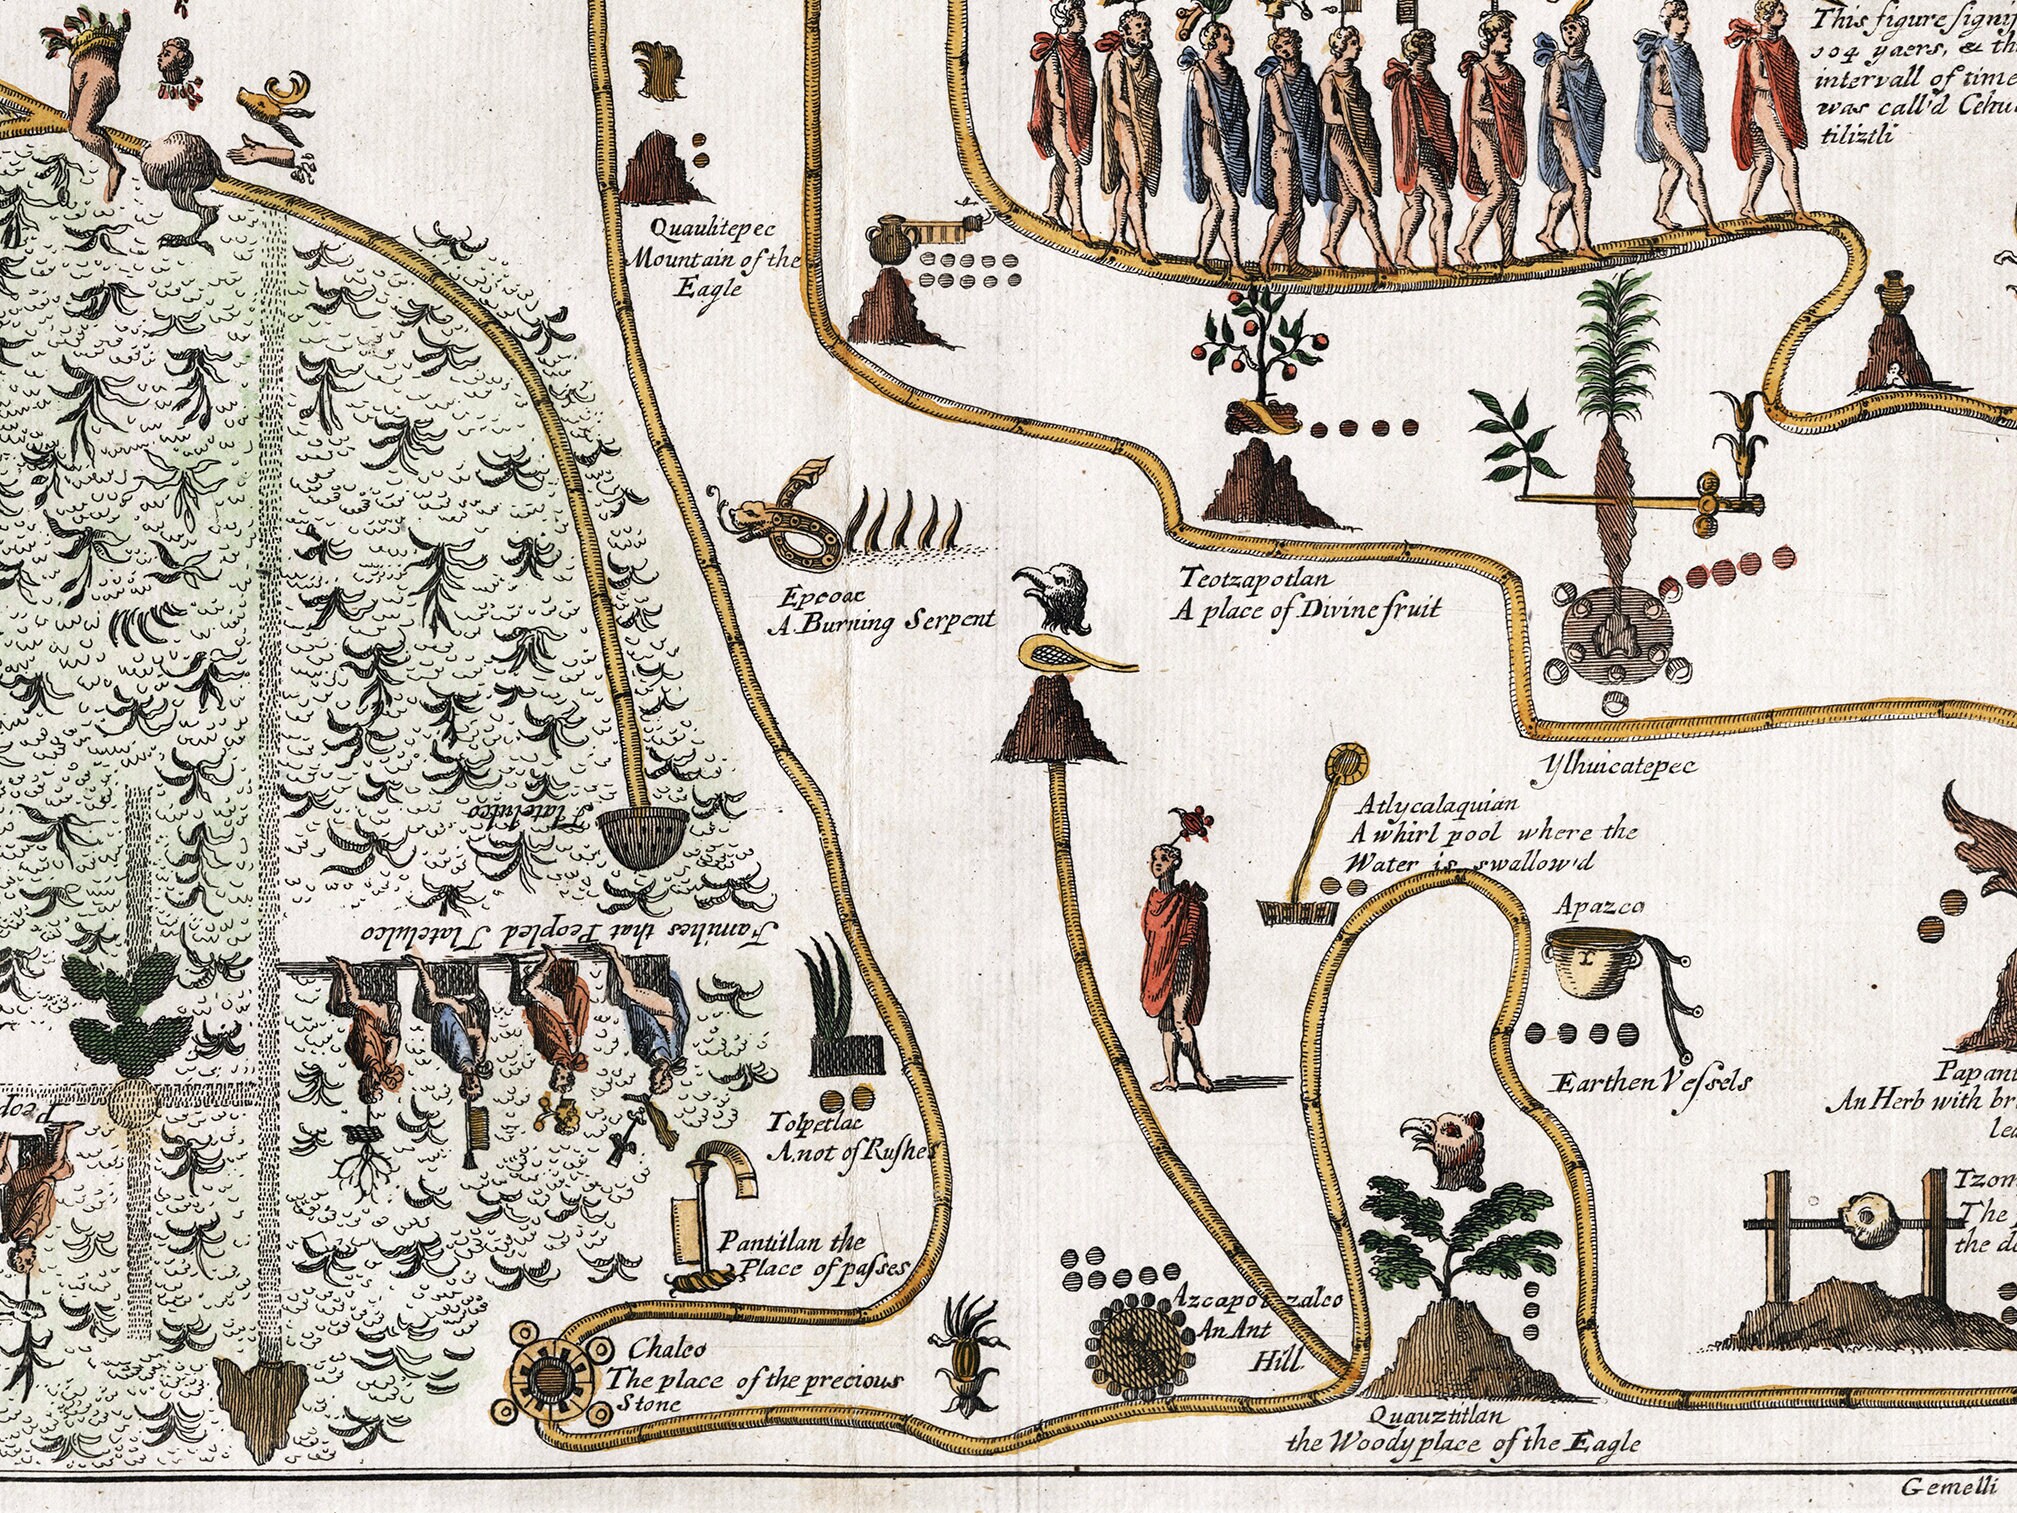 This figure signif
104 yaers, & th
intervall of time
was call'd Cehu
tiliztli
Quauhtepec
Mountain of the
Eagle
Epcoac
A Burning Serpent
Teotzapotlan
A place of Divine fruit
Ylhuicatepec
Atlycalaquian
A whirl pool where the
Water is swallow'd
Tlatelulco
Apazco
Earthen Vessels
Families that Peopled Tlatelulco
Papant
An Herb with br
lea
Peop
Tolpetlac
A not of Rushes
Tzom
The p
the de
Pantitlan the
Place of passes
Azcapotzalco
An Ant
Hill
Chalco
The place of the precious
Stone
Quauztitlan
the Woody place of the Eagle
Gemelli